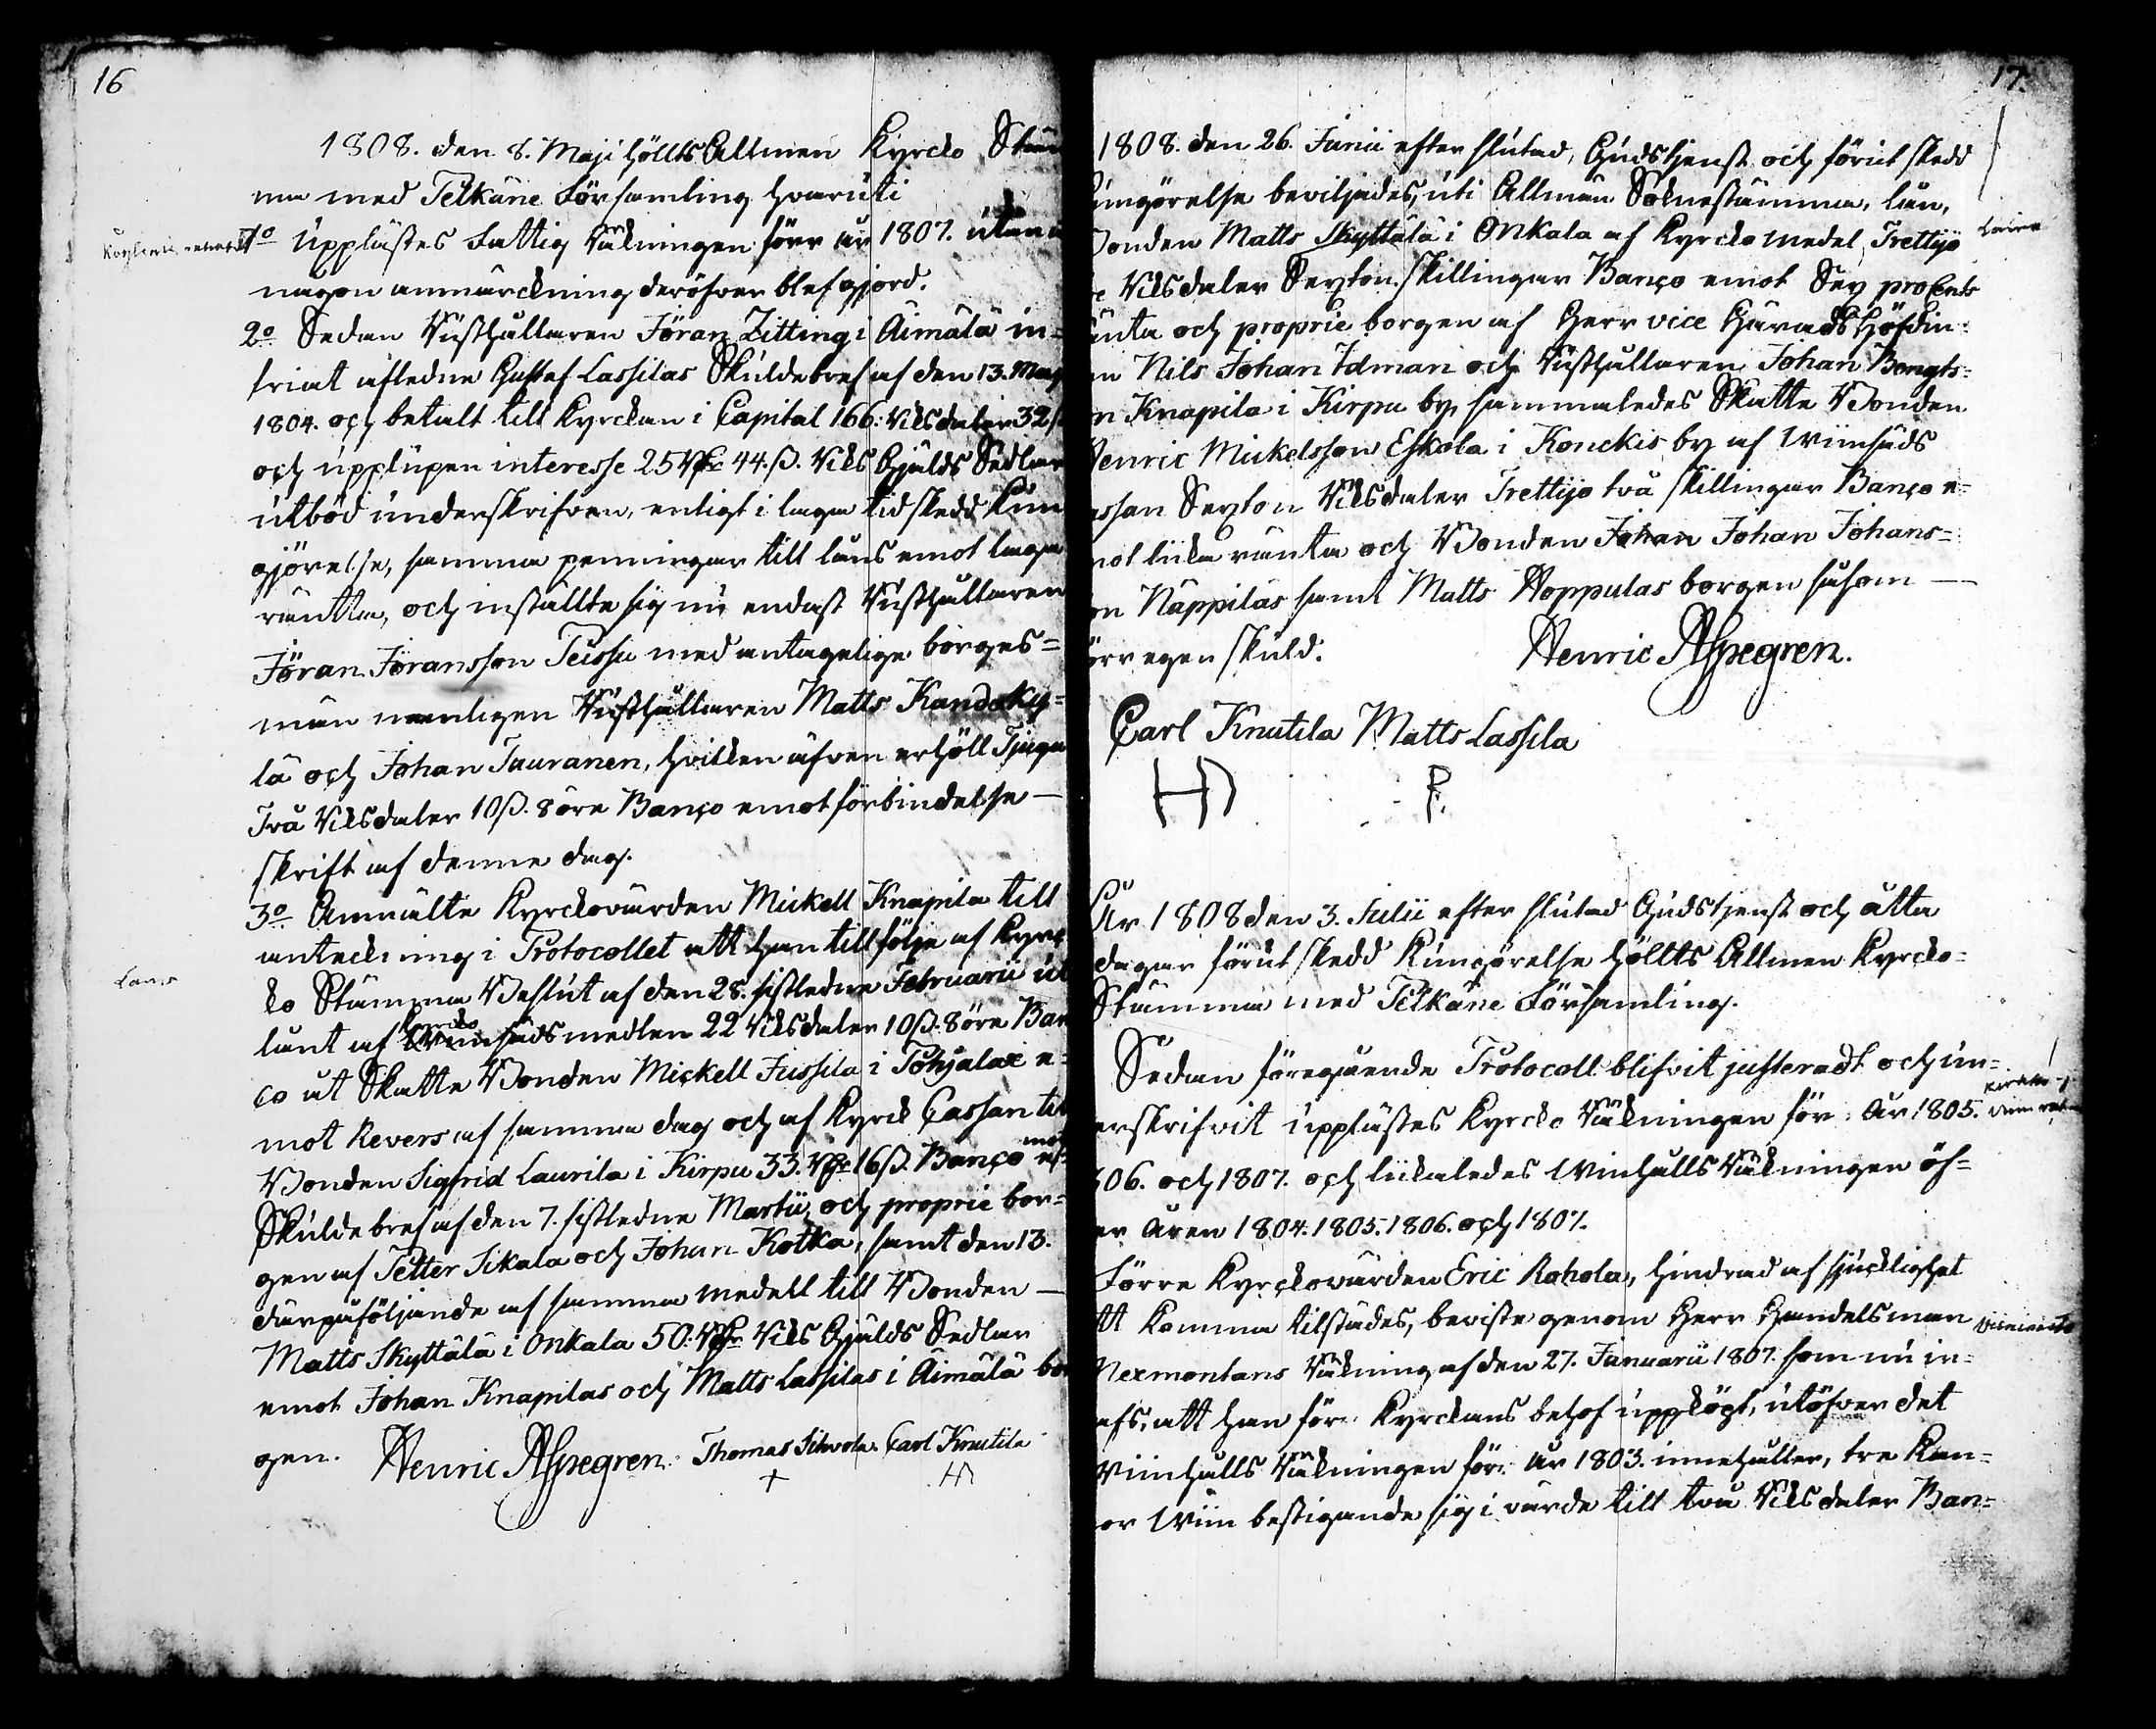 16
1808. den 8. Maji höllts Allmen Kyrcko Stäm
ma med Pelkäne Församling hvaruti
1o Upplästes Fattig Räkningen förr år 1807. utan
någon anmärckning deröfver blef gjord.
2o Sedan Rusthållaren Jöran Zitting i Äimälä in=
friat afledne Gustaf Lassilas Skuldebref af den 13. Maji
1804. och betalt till Kyrckan i Capital 166: Riksdaler 32 s
och upplupen interesse 25 Rdr 44. ß. Riks Gjälds Sedlar
utbød underskrifven, enligt i laga tid skedd Kun
gjörelse, samma penningar till låns emot laga
räntta, och inställte sig nu endast Rusthållaren
Jöran Jöransson Teissu med antagelige borges=
män nemligen Rusthållaren Matts Kandoky=
lä och Johan Tauranen, hvilken äfven erhöll Tjugu
Två Riksdaler 10 ß. 8 öre Banço emot förbindelse —
skrift af denne dag.
3o Anmälte Kyrckovärden Mickell Knapila till
anteckning i Protocollet att han till följe af Kyrc
ko Stämma Beslut af den 28. sistledne Februarii ut
Lans
lånt af Kyrcko medlen 22 Riksdaler 10 ß. 8 öre Ban
co åt Skatte Bonden Mickell Jussila i Pohjalax e=
mot Revers af samma dag och af Kyrck Cassan till
Bonden Sigfrid Laurila i Kirpu 33. Rdr 16 ß. Banço mot
Skuldebref af den 7. sistledne Martii, och proprie bor=
gen af Petter Sikala och Johan Kotka, samt den 13.
därpåföljande af samma medell till Bonden —
Matts Skyttälä i Onkala 50. Rdr Riks Gjälds Sedlar
emot Johan Knapilas och Matts Lassilas i Äimälä bor
gen. Henric Aspegren. Thomas Silvola. Carl Knutila
17.
1808. den 26. Junii efter slutad, Gudstjenst och förut skedd
ungörelse beviljades, uti Allmän Söknestämma, lån,
Bonden Matts Skyttälä i Onkala af Kyrcko medel, Trettijo
Laina
Riksdaler Sexton skillingar Banço emot Sex proCents
änta och proprie borgen af Herr vice Härads Höfdin=
en Nils Johan Idman och Rusthållaren Johan Bengts=
n Knapila i Kirpu by, sammaledes Skatte Bonden
Henric Mickelsson Eskola i Konckis by af Winsäds
assan Sexton Riksdaler Trettijo två skillingar Banço e=
mot lika ränta och Bonden Johan Johan Johans=
on Näppiläs samt Matts Hoppulas borgen såsom —
örr egen skuld. Henric Aspegren.
Carl Knutila Matts Lassila
År 1808 den 3. Julii efter slutad Gudstjenst och åtta
dagar förut skedd Kungörelse höllts Allmen Kyrcko=
Stämma med Pelkäne Församling.
Sedan föregående Protocoll blifvit justeradt och un=
erskrifvit upplästes Kyrcko Räkningen för År 1805.
806. och 1807. och likaledes Winhålls Räkningen öf=
er åren 1804. 1805. 1806. och 1807.
Förre Kyrckovärden Eric Rohola, hindrad af sjucklighet
tt komma tilstädes, beviste genom Herr Handelsman
Nexmontans Räkning af den 27. Januarii 1807. som nu in=
afs, att han för Kyrckans behof uppköpt, utöfver det
Winhålls Räkningen för år 1803. innehåller, tre Kan=
or Win bestigande sig i värde till två Riksdaler Ban=